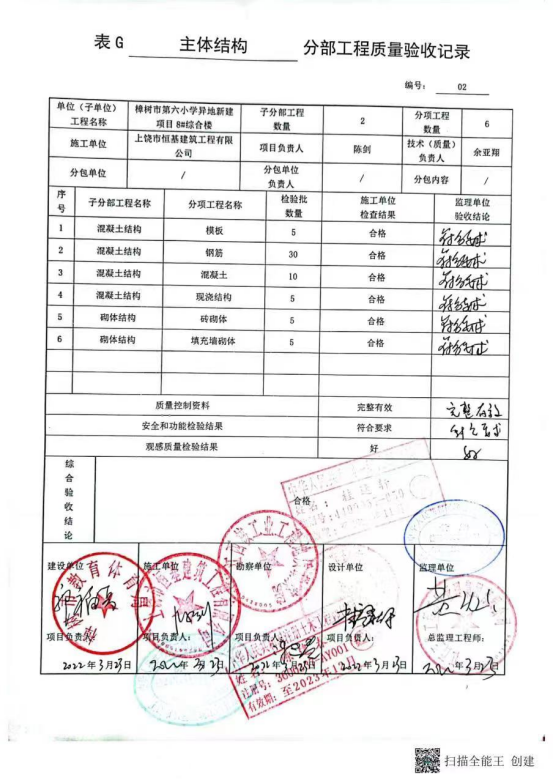 表 G 主体结构 分部工程质量验收记录
编号： 02
单位（子单位）工程名称 樟树市第六小学异地新建项目8#综合楼 子分部工程数量 2 分项工程数量 6
施工单位 上饶市恒基建筑工程有限公司 项目负责人 陈剑 技术（质量）负责人 余亚翔
分包单位 / 分包单位负责人 / 分包内容 /
序号 子分部工程名称 分项工程名称 检验批数量 施工单位检查结果 监理单位验收结论
1 混凝土结构 模板 5 合格 符合要求
2 混凝土结构 钢筋 30 合格 符合要求
3 混凝土结构 混凝土 10 合格 符合要求
4 混凝土结构 现浇结构 5 合格 符合要求
5 砌体结构 砖砌体 5 合格 符合要求
6 砌体结构 填充墙砌体 5 合格 符合要求
质量控制资料 完整有效 完整有效
安全和功能检验结果 符合要求 符合要求
观感质量检验结果 好 好
综合验收结论 合格
建设单位 施工单位 勘察单位 设计单位 监理单位
项目负责人： 项目负责人： 项目负责人： 项目负责人： 总监理工程师：
2022年3月23日 2022年3月23日 2022年3月23日 2022年3月23日 2022年3月23日
有效期：至2023年12月
扫描全能王 创建